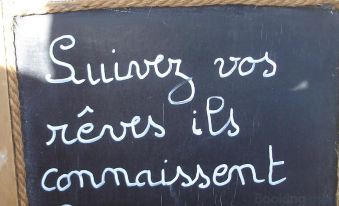 Suivez vos
rêves ils
connaissent
Booking